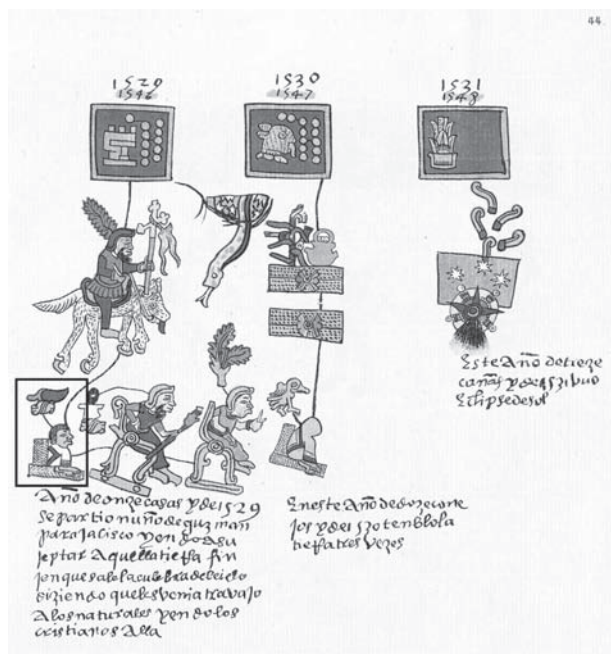 44.
1529
1546
1530
1547
1531
1548
Este Año de treze
cañas y de 1531 buo
Eclipse de sol
Año de onze casas y de 1529
se partio nuño de guzman
para Jalisco yendo a su
jeptar Aquella tierra fin
jen que salo la culebra del cielo
diziendo que les venia travajo
A los naturales yendo los
cristianos Alla
En este Año de doze cone
jos y de 1530 tenblo la
tierra tres vezes